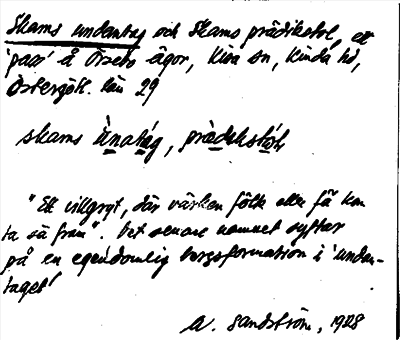 Skams undantag och Skams prädikstol, ett
'pass' å Örsebo ägor, Kisa sn, Kinda hd,
Östergötl. län 29
skams ùnatág, prädekstòl
"Ett villgryt, där värken fölk eller fä kan
ta sä fram". Det senare namnet syftar
på en egendomlig bergsformation i 'undan-
taget'
A. Sandström, 1928